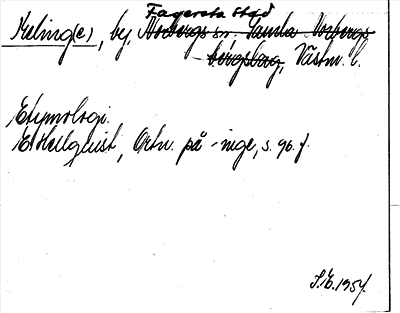 Fagersta stad
Meling(e), by, Norbergs sn. Gamla Norbergs
bergslag, Västm. l.
Etymologi.
E. Hellquist, Ortn. på -inge, s. 96 f.
S.E. 1954.